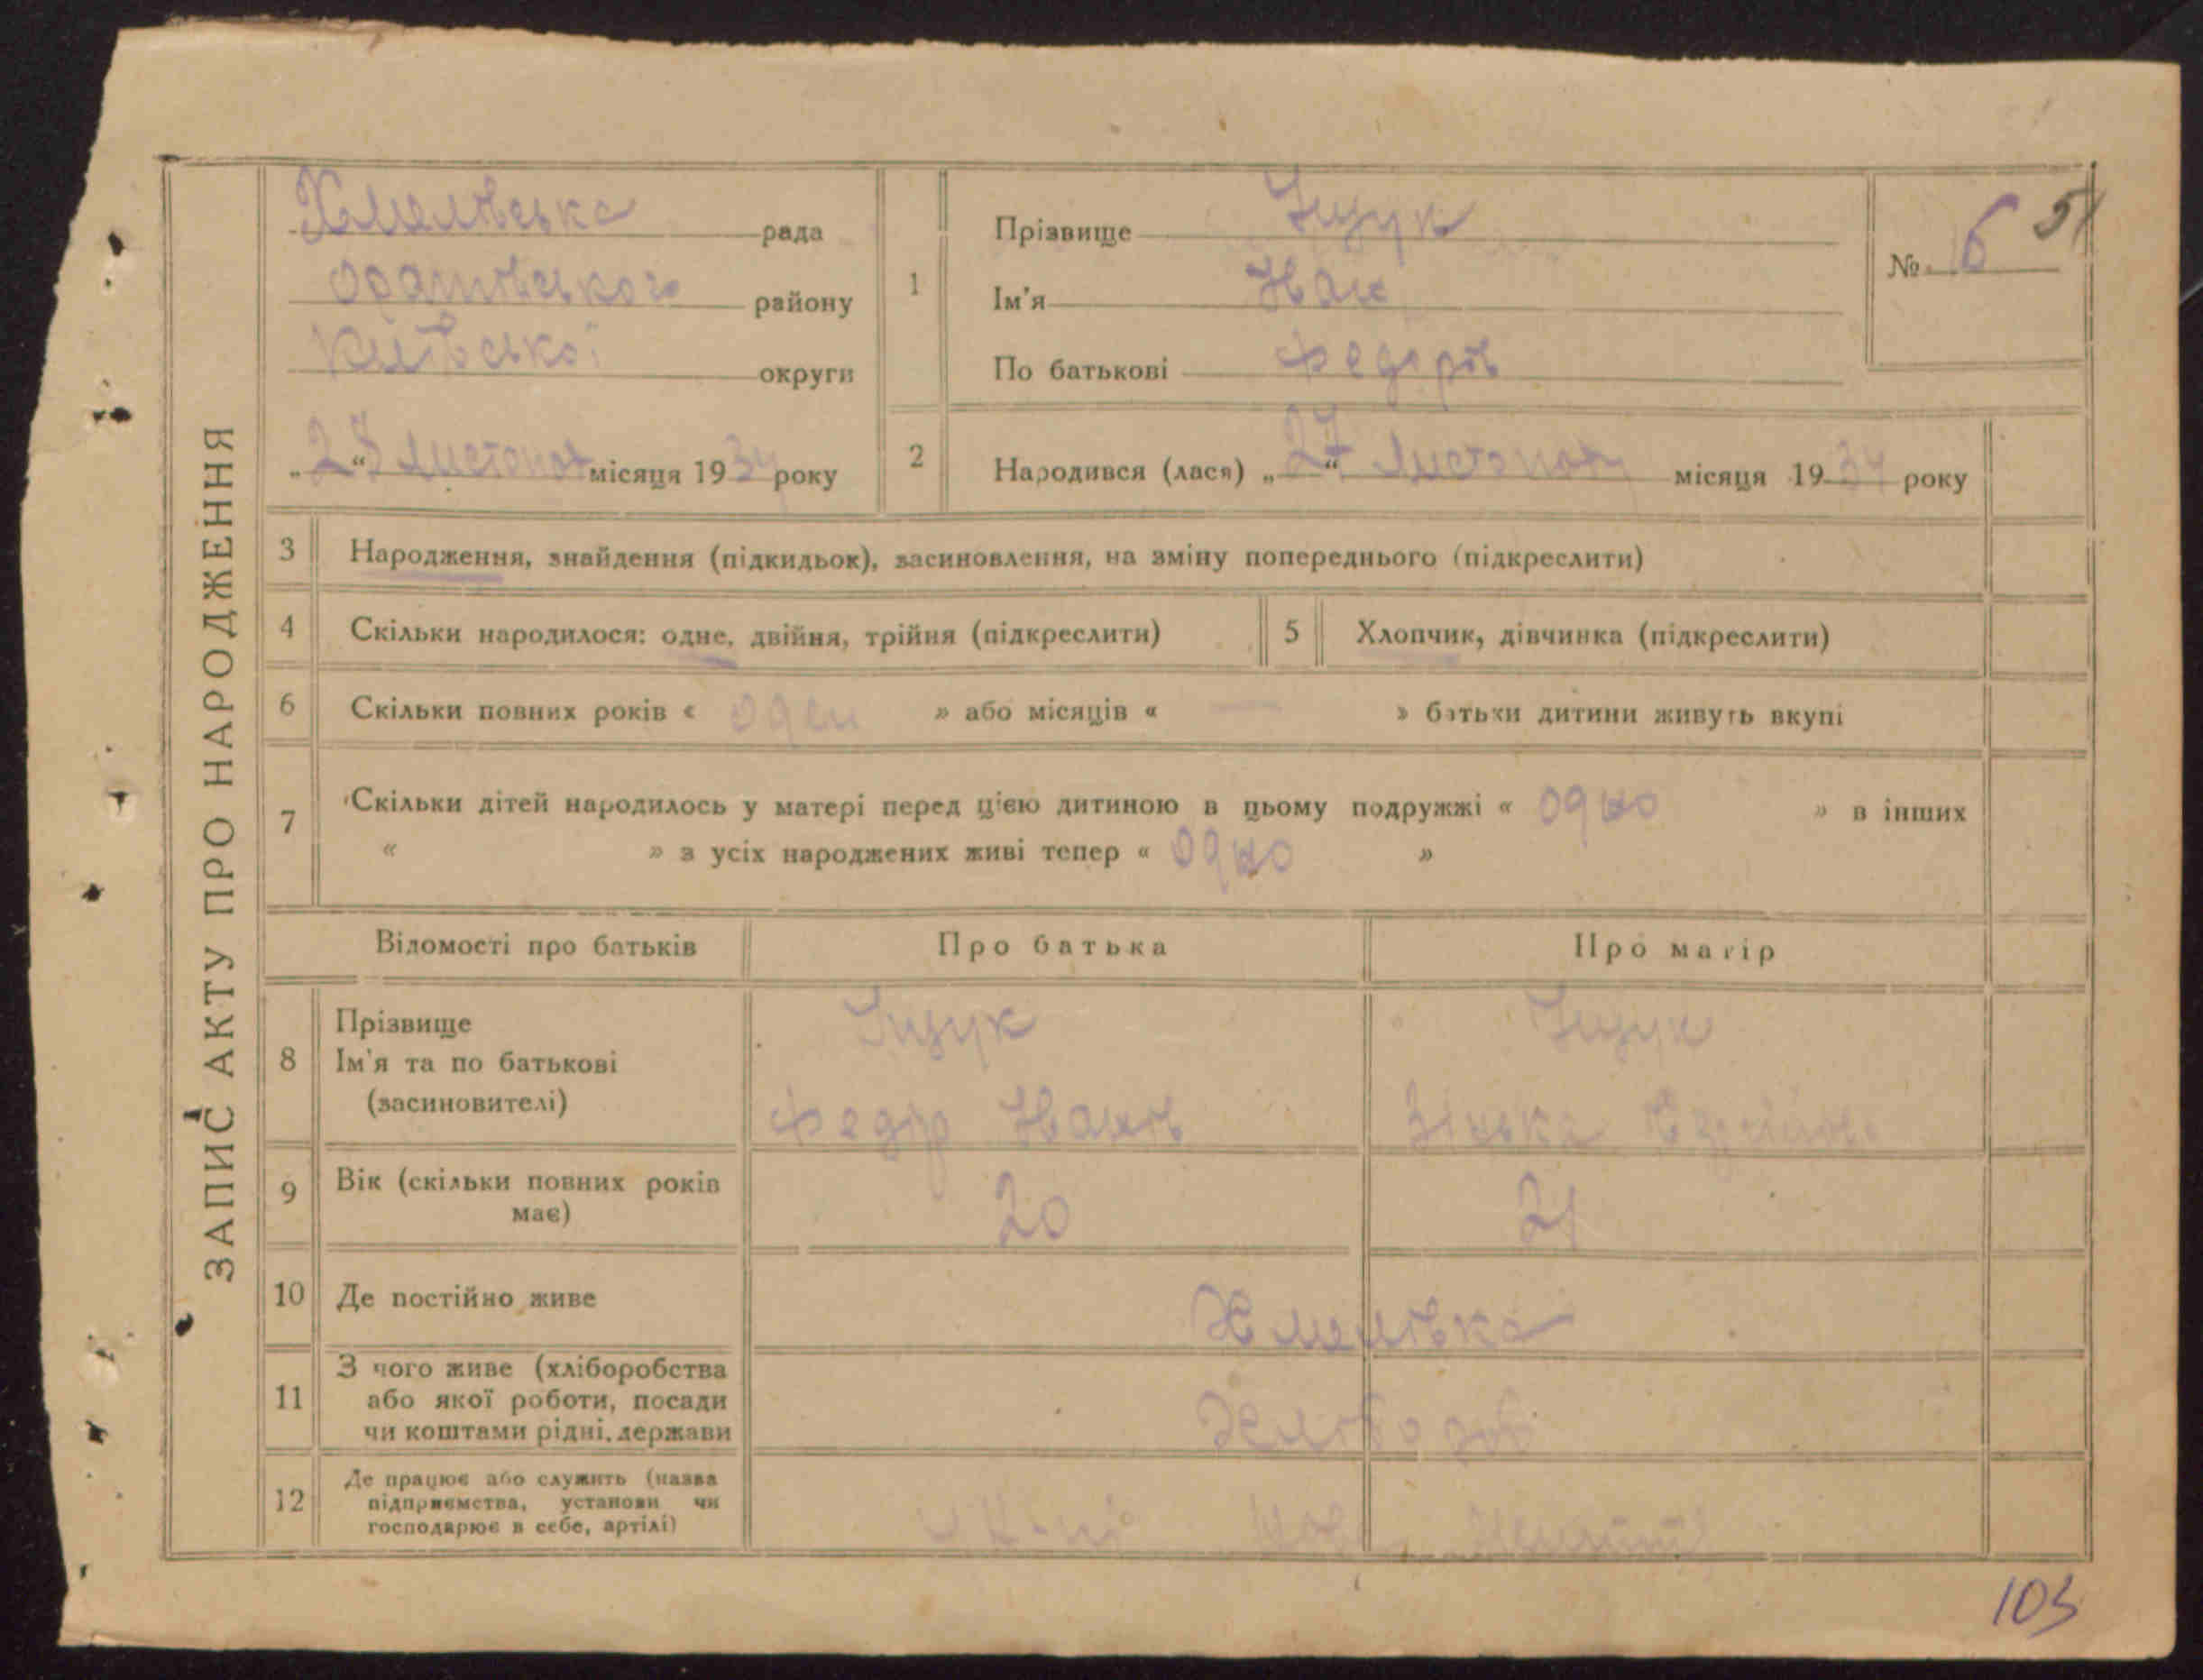 ЗАПИС АКТУ ПРО НАРОДЖЕННЯ
Хмелівська рада
Оратівського району
Київської округи
„28“ Листопад місяця 1934 року
1
Прізвище Іщук
Ім'я Іван
По батькові Федорів
№ 6 51
2
Народився (лася) „27“ Листопад місяця 1934 року
3 Народження, знайдення (підкидьок), засиновлення, на зміну попереднього (підкреслити)
4 Скільки народилося: одне, двійня, трійня (підкреслити) 5 Хлопчик, дівчинка (підкреслити)
6 Скільки повних років « один » або місяців « — » батьки дитини живуть вкупі
7 Скільки дітей народилось у матері перед цією дитиною в цьому подружжі « одно » в інших
« » з усіх народжених живі тепер « одно »
Відомості про батьків Про батька Про матір
8 Прізвище
Ім'я та по батькові
(засиновителі)
Іщук
Федір Іванів
Іщук
Зінька
9 Вік (скільки повних років
має)
20 21
10 Де постійно живе Хмелівка
11 З чого живе (хліборобства
або якої роботи, посади
чи коштами рідні, держави
12 Де працює або служить (назва
підприємства, установи чи
господарює в себе, артілі)
103